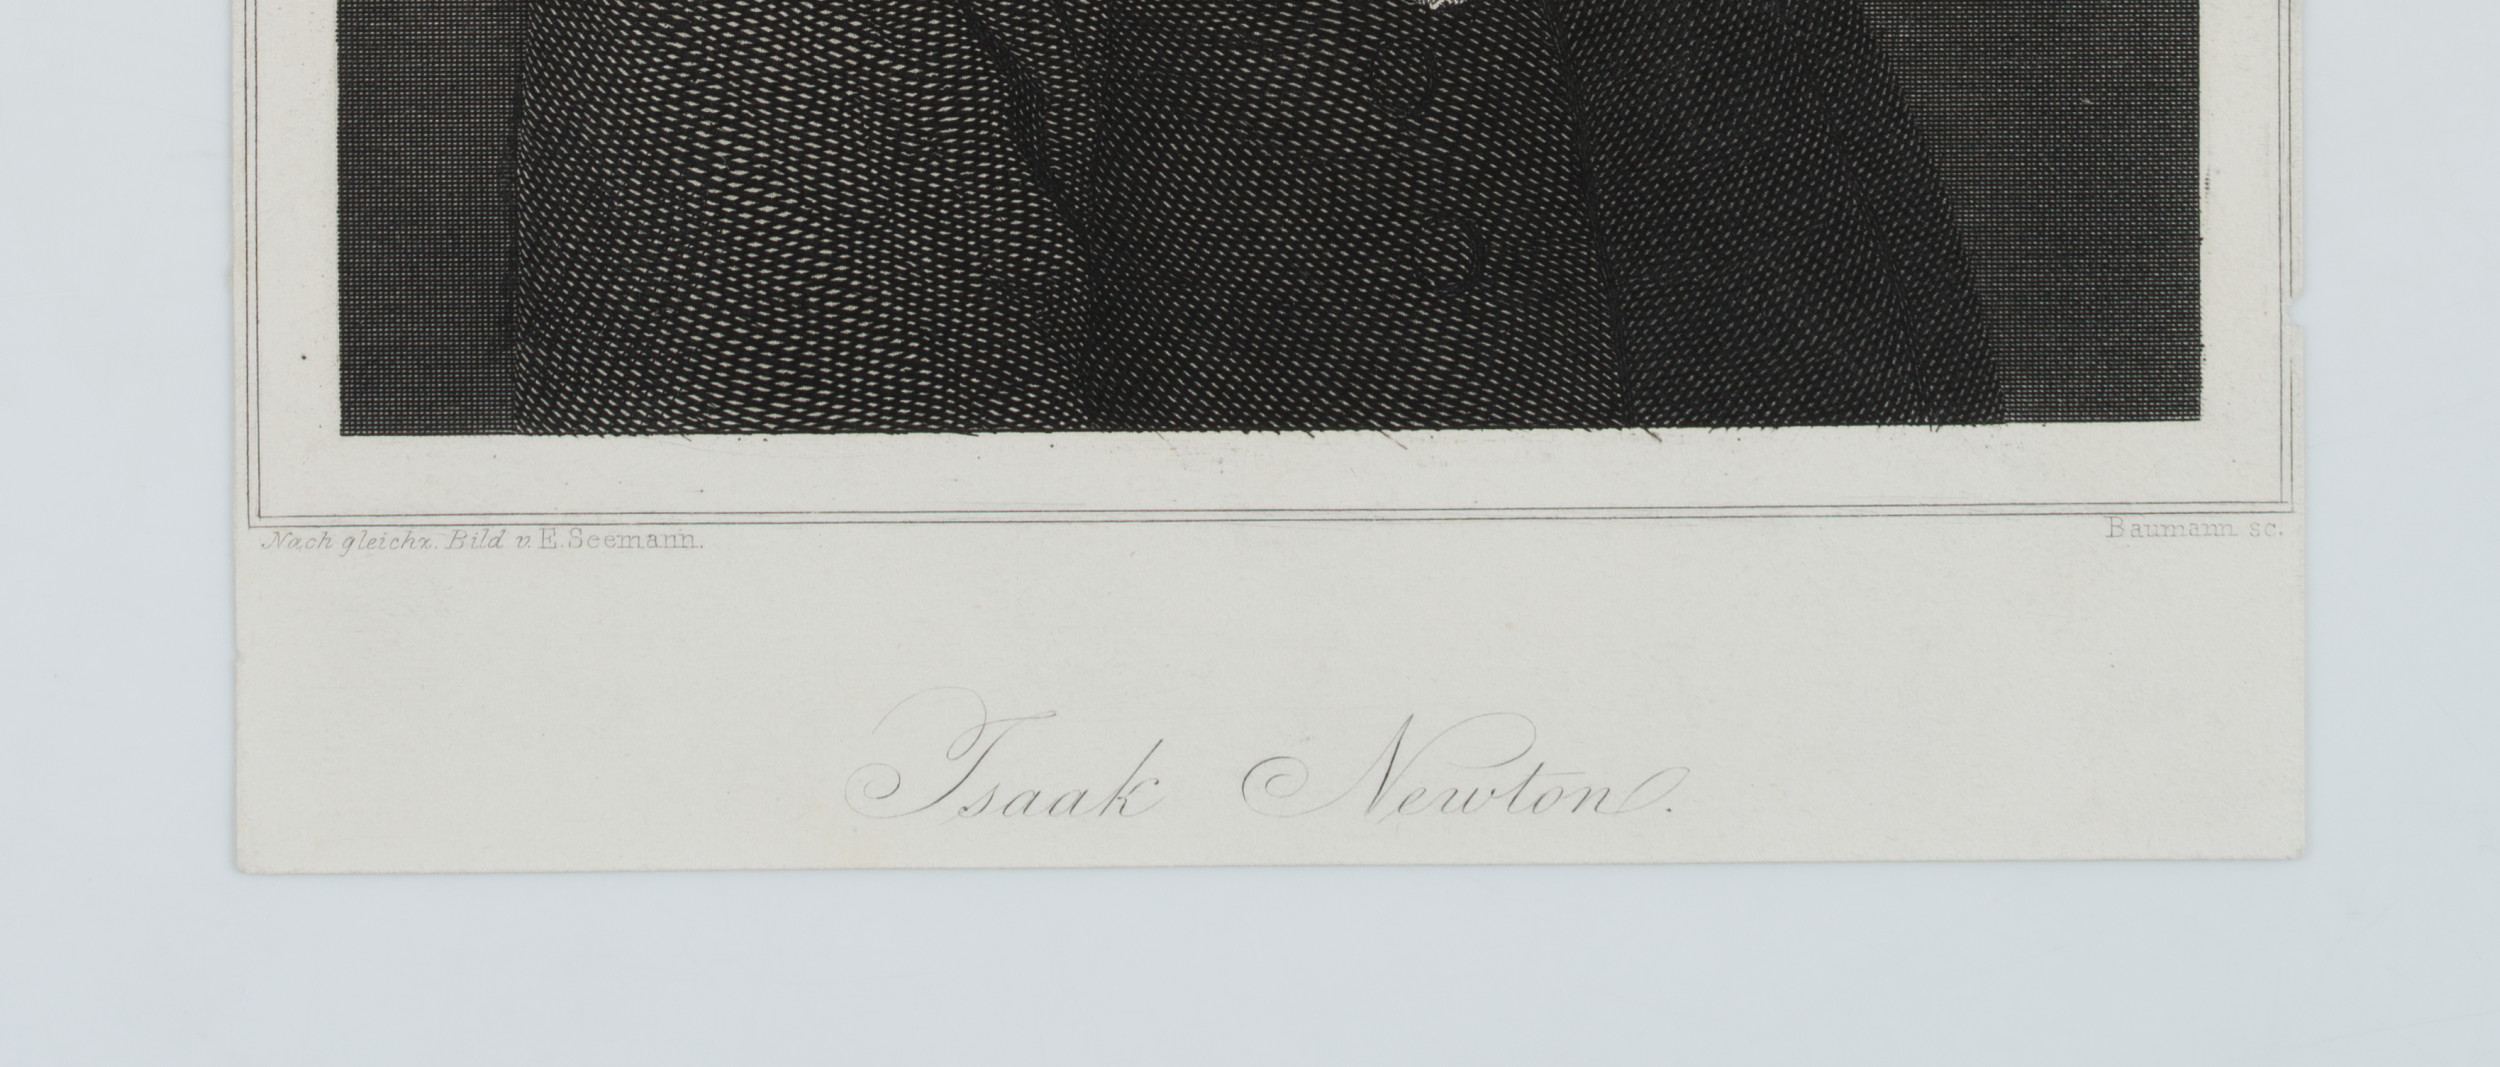 Nach gleichz. Bild v. E. Seemann.
Baumann sc.
Isaak Newton.